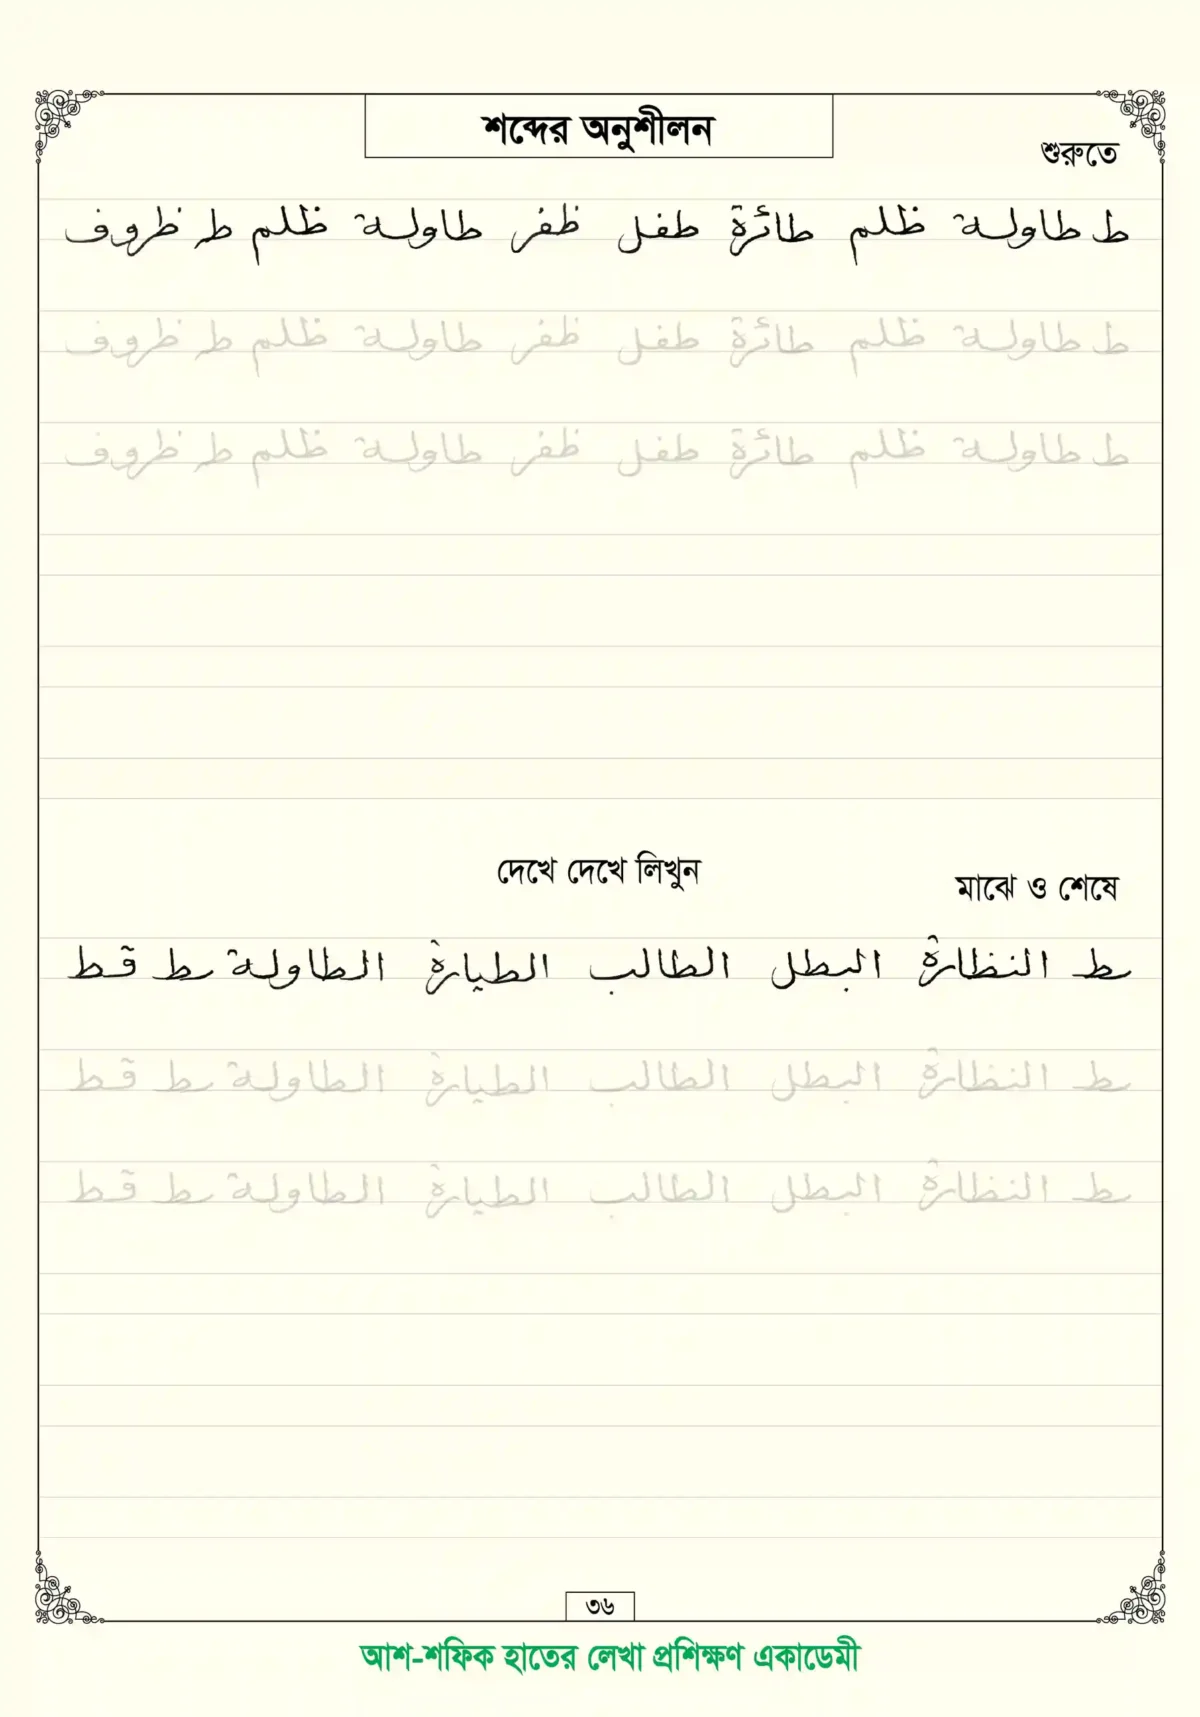 শব্দের অনুশীলন
শুরুতে
ط طاولة ظلم طائرة طفل ظفر طاولة ظلم ط ظروف
ط طاولة ظلم طائرة طفل ظفر طاولة ظلم ط ظروف
ط طاولة ظلم طائرة طفل ظفر طاولة ظلم ط ظروف
দেখে দেখে লিখুন
মাঝে ও শেষে
ـط النظارة البطل الطالب الطيارة الطاولة ـط قط
ـط النظارة البطل الطالب الطيارة الطاولة ـط قط
ـط النظارة البطل الطالب الطيارة الطاولة ـط قط
৩৬
আশ-শফিক হাতের লেখা প্রশিক্ষণ একাডেমী